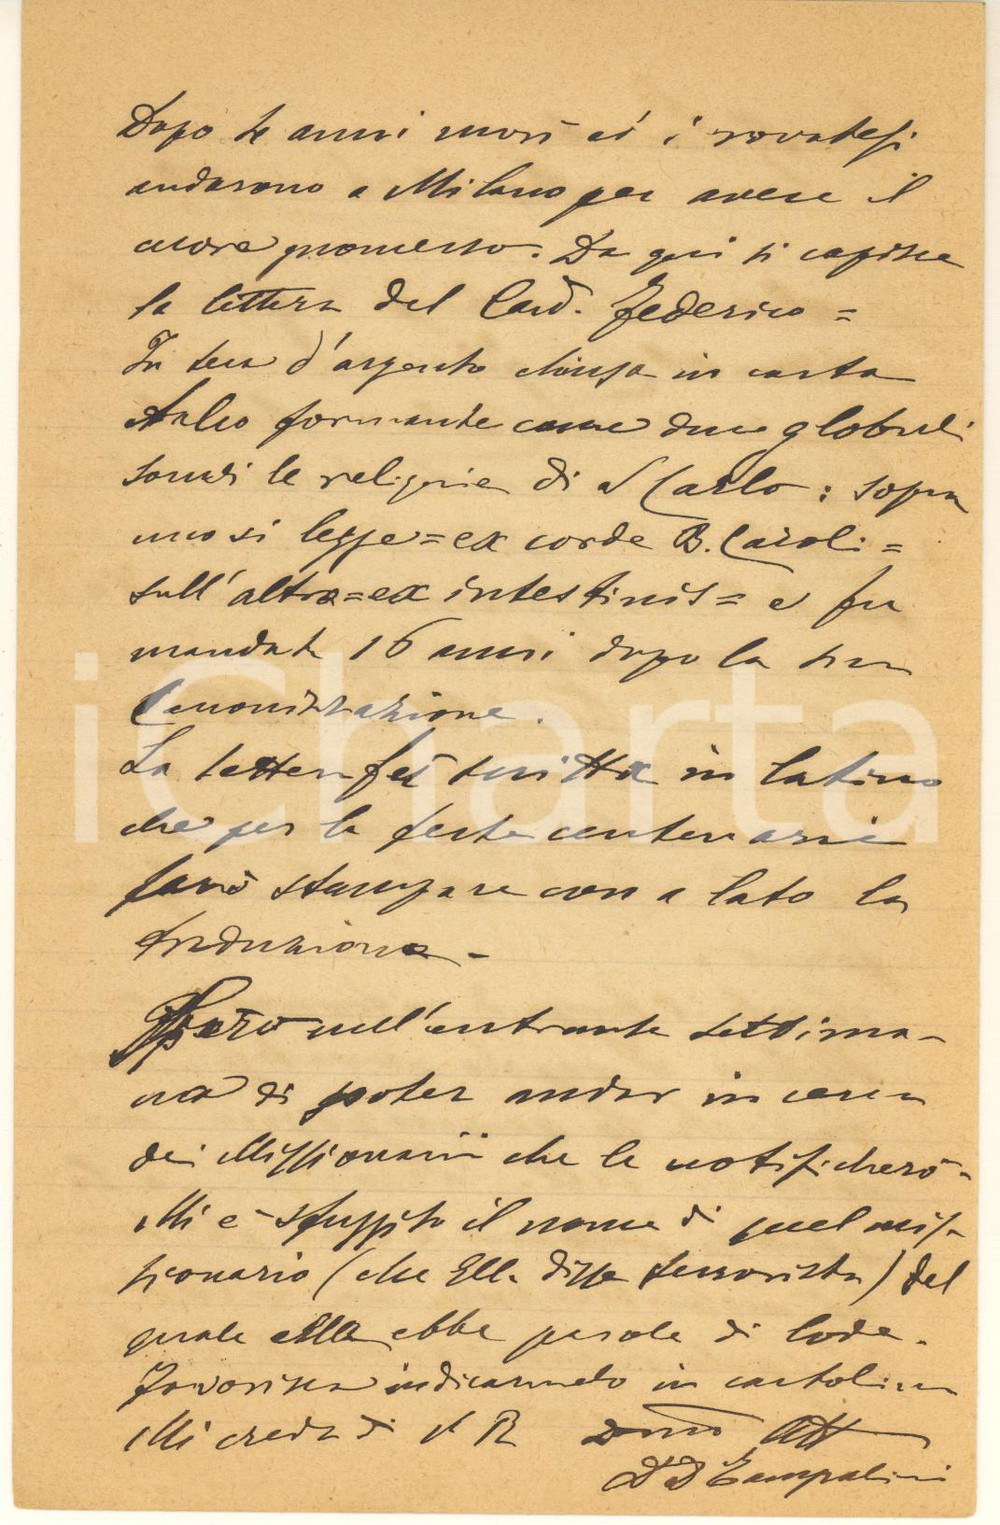 Dopo 4 anni morì ed i rovatesi
andarono a Milano per avere il
cuore promesso. Da qui si capisce
la lettera del Card. Federico =
In teca d'argento chiusa in carta
formante come due globuli
sonvi le reliquie di S Carlo: sopra
uno si legge = ex corde B. Caroli =
sull'altro = ex intestinis = e fu
mandata 16 anni dopo la sua
Canonizzazione.
La lettera fu scritta in latino
che per le feste centenarie
farò stampare con a lato la
traduzione -
Spero nell'entrante settima-
na di poter andar in cerca
dei Missionarii che le notificherò -
Mi è sfuggito il nome di quel mis-
sionario (che Ella disse terrorista) del
quale ella ebbe parole di lode.
Favorisca indicarmelo in cartolina
Mi creda di V R
iCharta